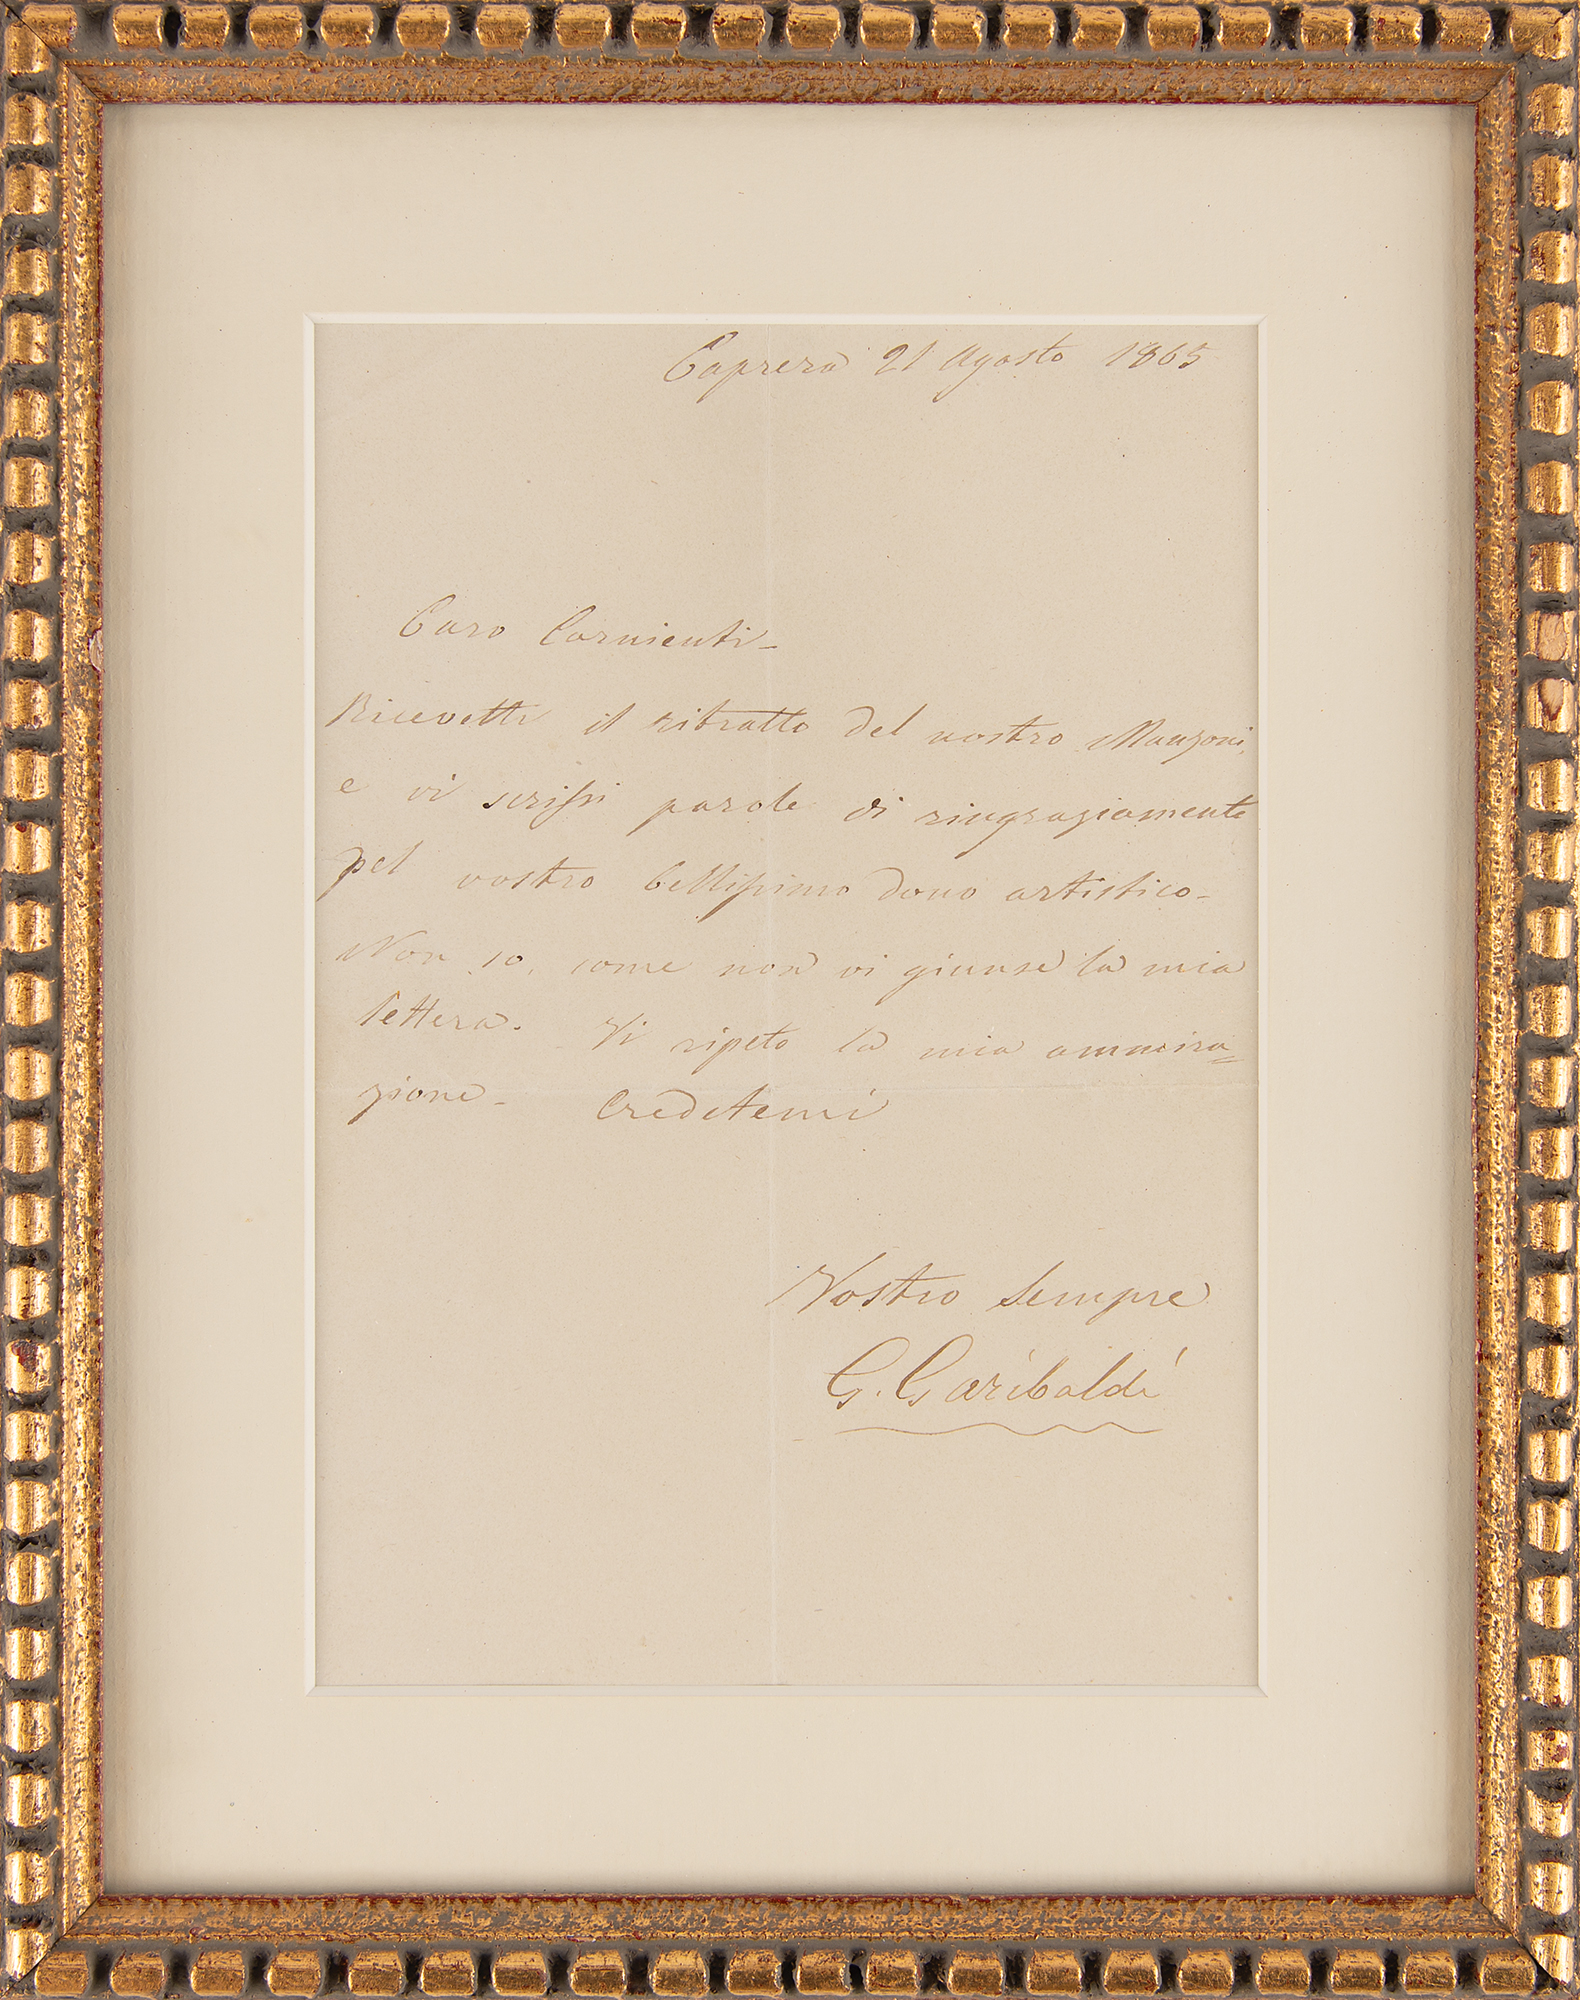 Caprera 21 Agosto 1865
Caro Carnienti-
Ricevetti il ritratto del nostro Manzoni,
e vi scrissi parole di ringraziamento
pel vostro bellissimo dono artistico-
Non so, come non vi giunse la mia
lettera. Vi ripeto la mia ammira=
zione- Credetemi
Vostro Sempre
G. Garibaldi